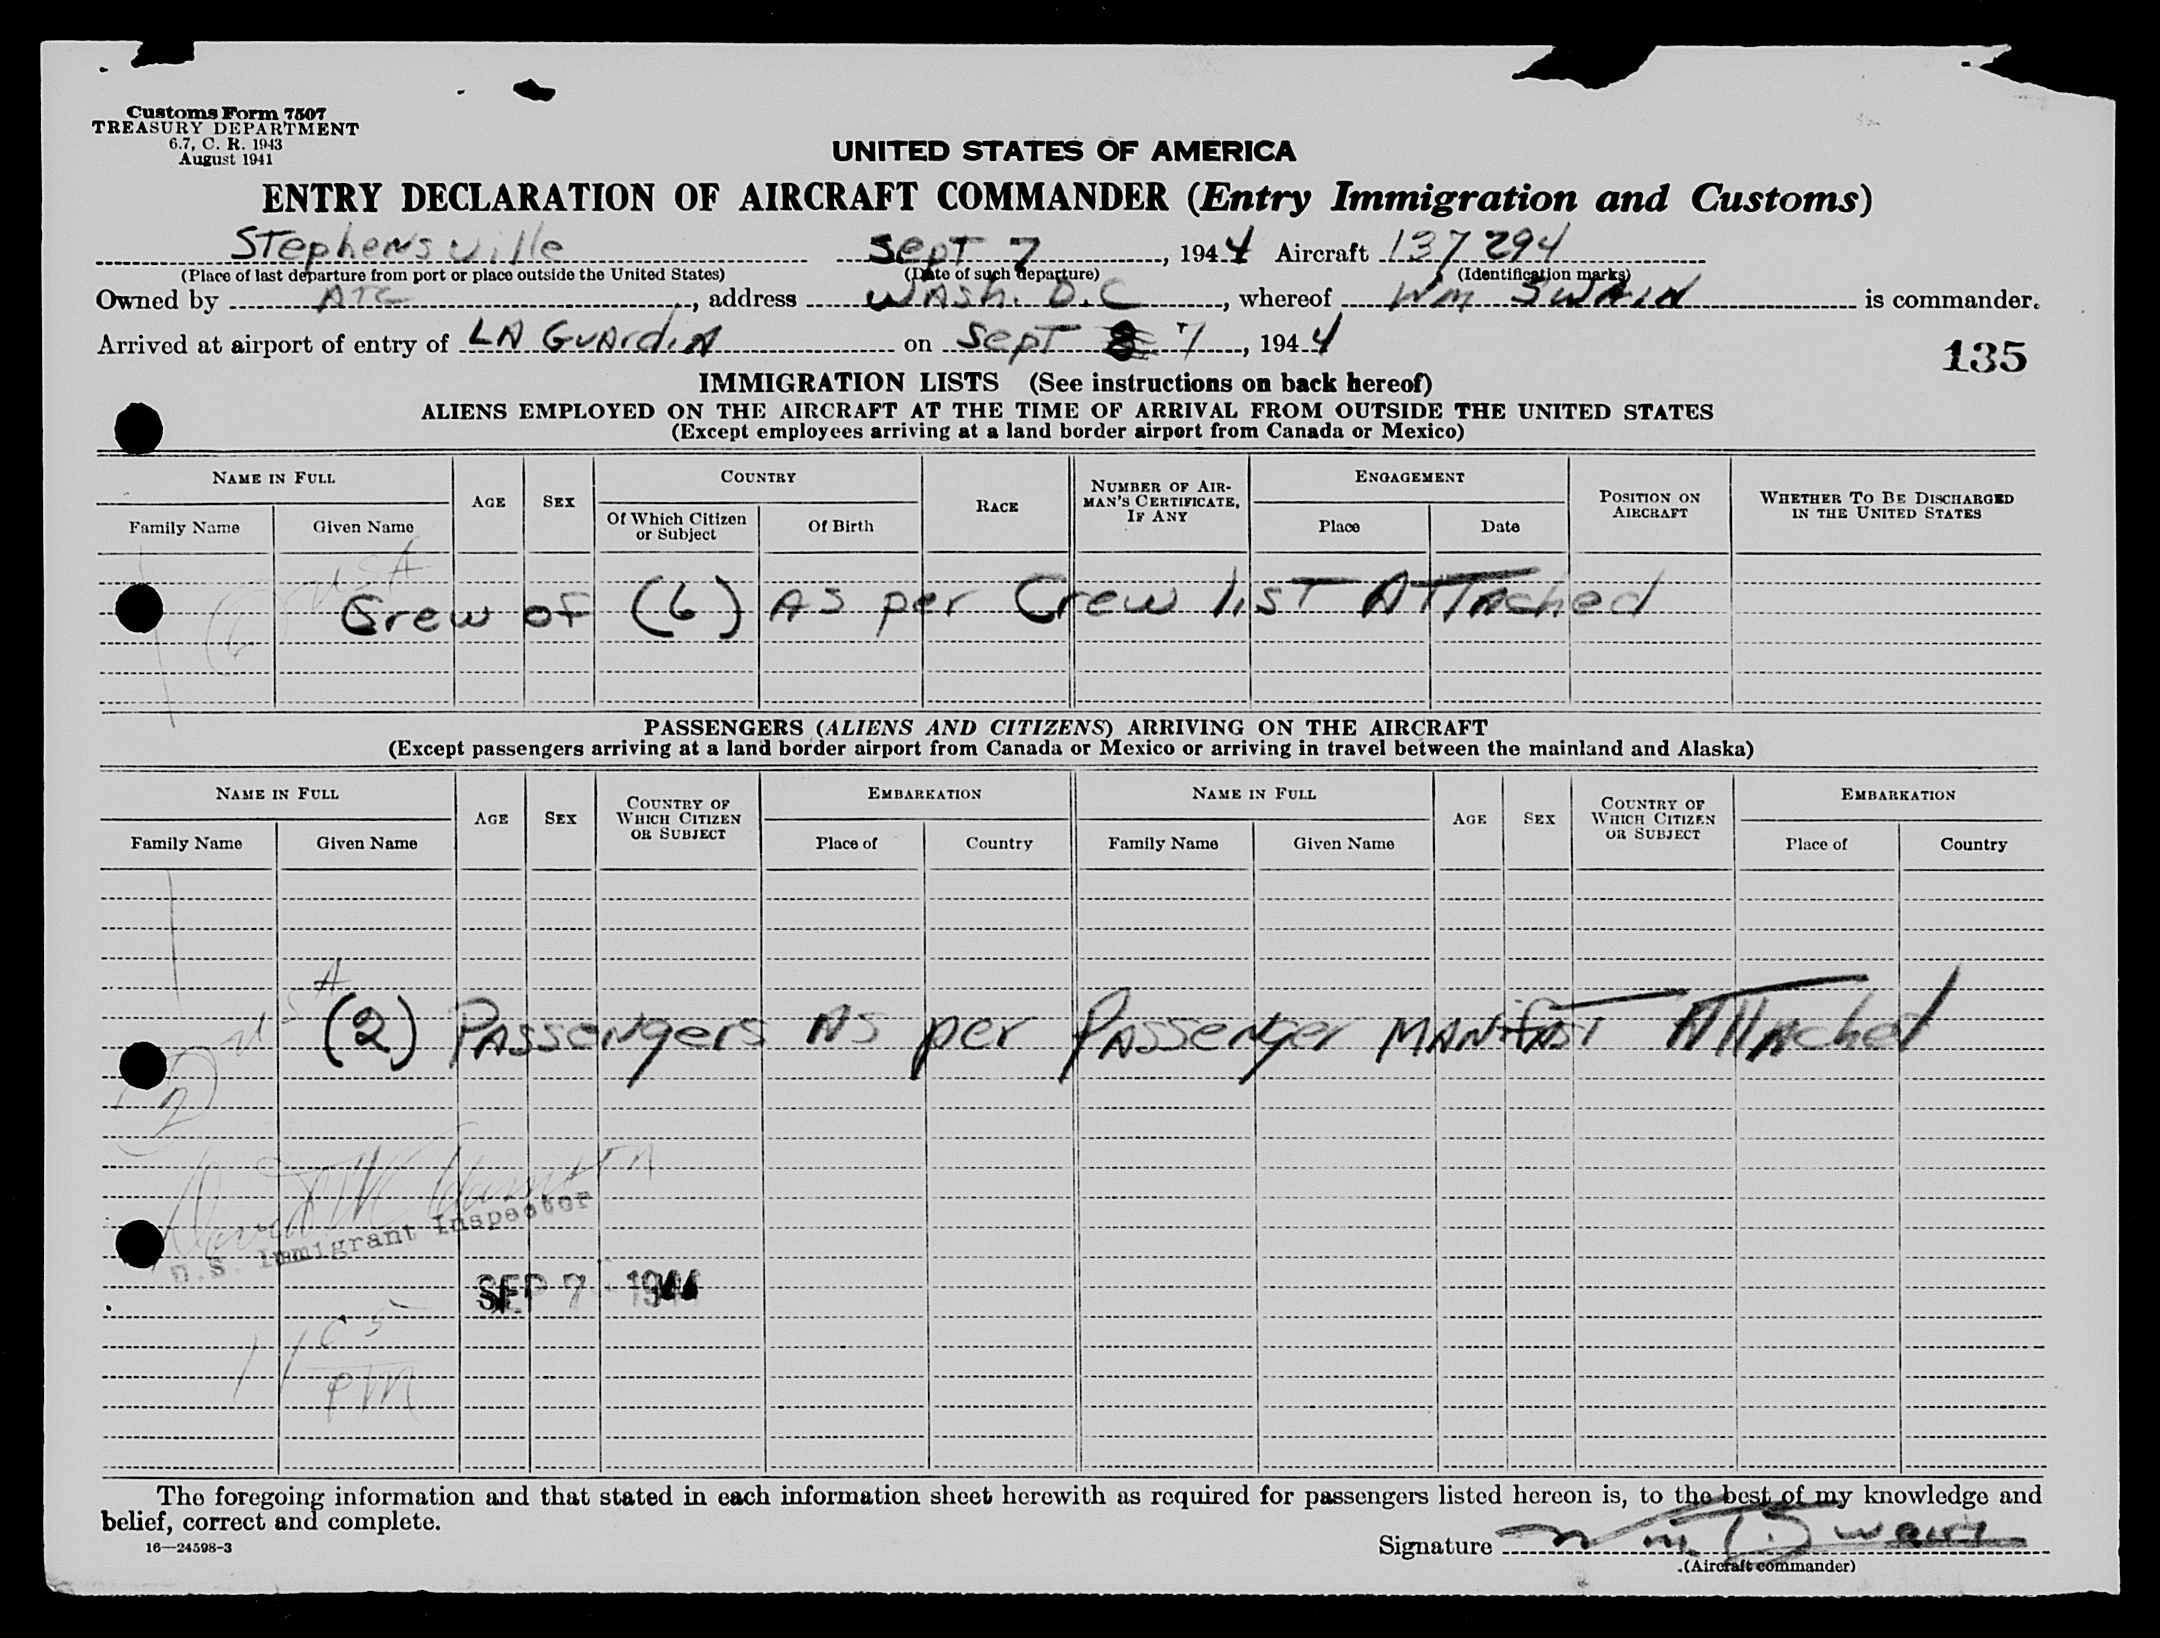 Customs Form 7507
TREASURY DEPARTMENT
6.7, C. R. 1943
August 1941
UNITED STATES OF AMERICA
ENTRY DECLARATION OF AIRCRAFT COMMANDER (Entry Immigration and Customs)
Stephensville Sept 7, 1944 Aircraft 137294
(Place of last departure from port or place outside the United States) (Date of such departure) (Identification marks)
Owned by ATC, address WASh. D.C, whereof Wm SWAIN is commander.
Arrived at airport of entry of LA GUArdiA on Sept 8 7, 1944
135
IMMIGRATION LISTS (See instructions on back hereof)
ALIENS EMPLOYED ON THE AIRCRAFT AT THE TIME OF ARRIVAL FROM OUTSIDE THE UNITED STATES
(Except employees arriving at a land border airport from Canada or Mexico)
NAME IN FULL AGE SEX COUNTRY RACE NUMBER OF AIRMAN'S CERTIFICATE, IF ANY ENGAGEMENT POSITION ON AIRCRAFT WHETHER TO BE DISCHARGED IN THE UNITED STATES
Family Name Given Name Of Which Citizen or Subject Of Birth Place Date
(6) USA
Crew of (6) AS per Crew list ATTAched
PASSENGERS (ALIENS AND CITIZENS) ARRIVING ON THE AIRCRAFT
(Except passengers arriving at a land border airport from Canada or Mexico or arriving in travel between the mainland and Alaska)
NAME IN FULL AGE SEX COUNTRY OF WHICH CITIZEN OR SUBJECT EMBARKATION NAME IN FULL AGE SEX COUNTRY OF WHICH CITIZEN OR SUBJECT EMBARKATION
Family Name Given Name Place of Country Family Name Given Name Place of Country
(2) USA
(2) PASSENgers AS per PASSENger MANifAST ATTAched
U.S. Immigrant Inspector
SEP 7 - 1944
11 05 PM
The foregoing information and that stated in each information sheet herewith as required for passengers listed hereon is, to the best of my knowledge and
belief, correct and complete.
16—24598-3
Signature Wm Swain
(Aircraft commander)